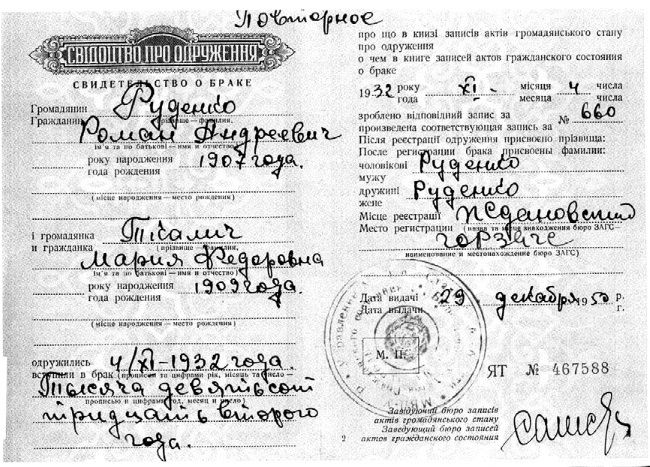 Повторное
СВІДОЦТВО ПРО ОДРУЖЕННЯ
СВИДЕТЕЛЬСТВО О БРАКЕ
Громадянин
Гражданин Руденко
прізвище — фамилия,
Роман Андреевич
ім'я та по батькові — имя и отчество
року народження
года рождения 1907 года.
(місце народження — место рождения)
і громадянка
и гражданка
(прізвище — фамилия,
Мария Федоровна
ім'я та по батькові — имя и отчество)
року народження
года рождения 1909 года.
(місце народження — место рождения)
одружились
вступили в брак 4/XI-1932 года.
(прописом та цифрами рік, місяць та число —
Тысяча девятьсот
прописью и цифрами год, месяц и число)
тридцать второго
года.
про що в книзі записів актів громадянського стану
про одруження
о чем в книге записей актов гражданского состояния
о браке
1932 року
года XI місяця
месяца 4 числа
числа
зроблено відповідний запис за
произведена соответствующая запись за № 660
Після реєстрації одруження присвоєно прізвища:
После регистрации брака присвоены фамилии:
чоловікові
мужу Руденко
дружині
жене Руденко
Місце реєстрації
Место регистрации Ждановский
(назва та місце знаходження бюро ЗАГС —
горЗАГС
наименование и местонахождение бюро ЗАГС)
Дата видачі
Дата выдачи 29 декабря 1950 р.
г.
М. П.
ЯТ № 467588
Завідуючий бюро записів
актів громадянського стану
Заведующий бюро записей
актов гражданского состояния
2